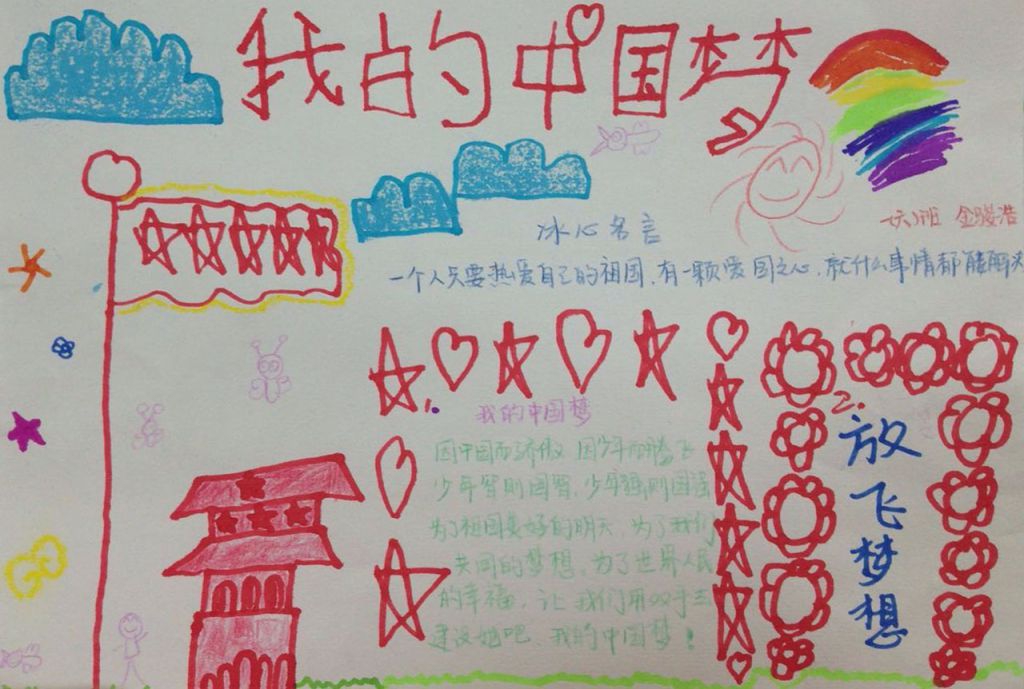 我的中国梦
一六班 金骏浩
冰心名言
一个人只要热爱自己的祖国,有一颗爱国之心,就什么事情都能解决
1.
我的中国梦
因中国而骄傲 因少年而腾飞
少年智则国智,少年强则国强
为了祖国美好的明天,为了我们
共同的梦想,为了世界人民
的幸福,让我们用双手去
建设她吧,我的中国梦!
2.
放飞梦想